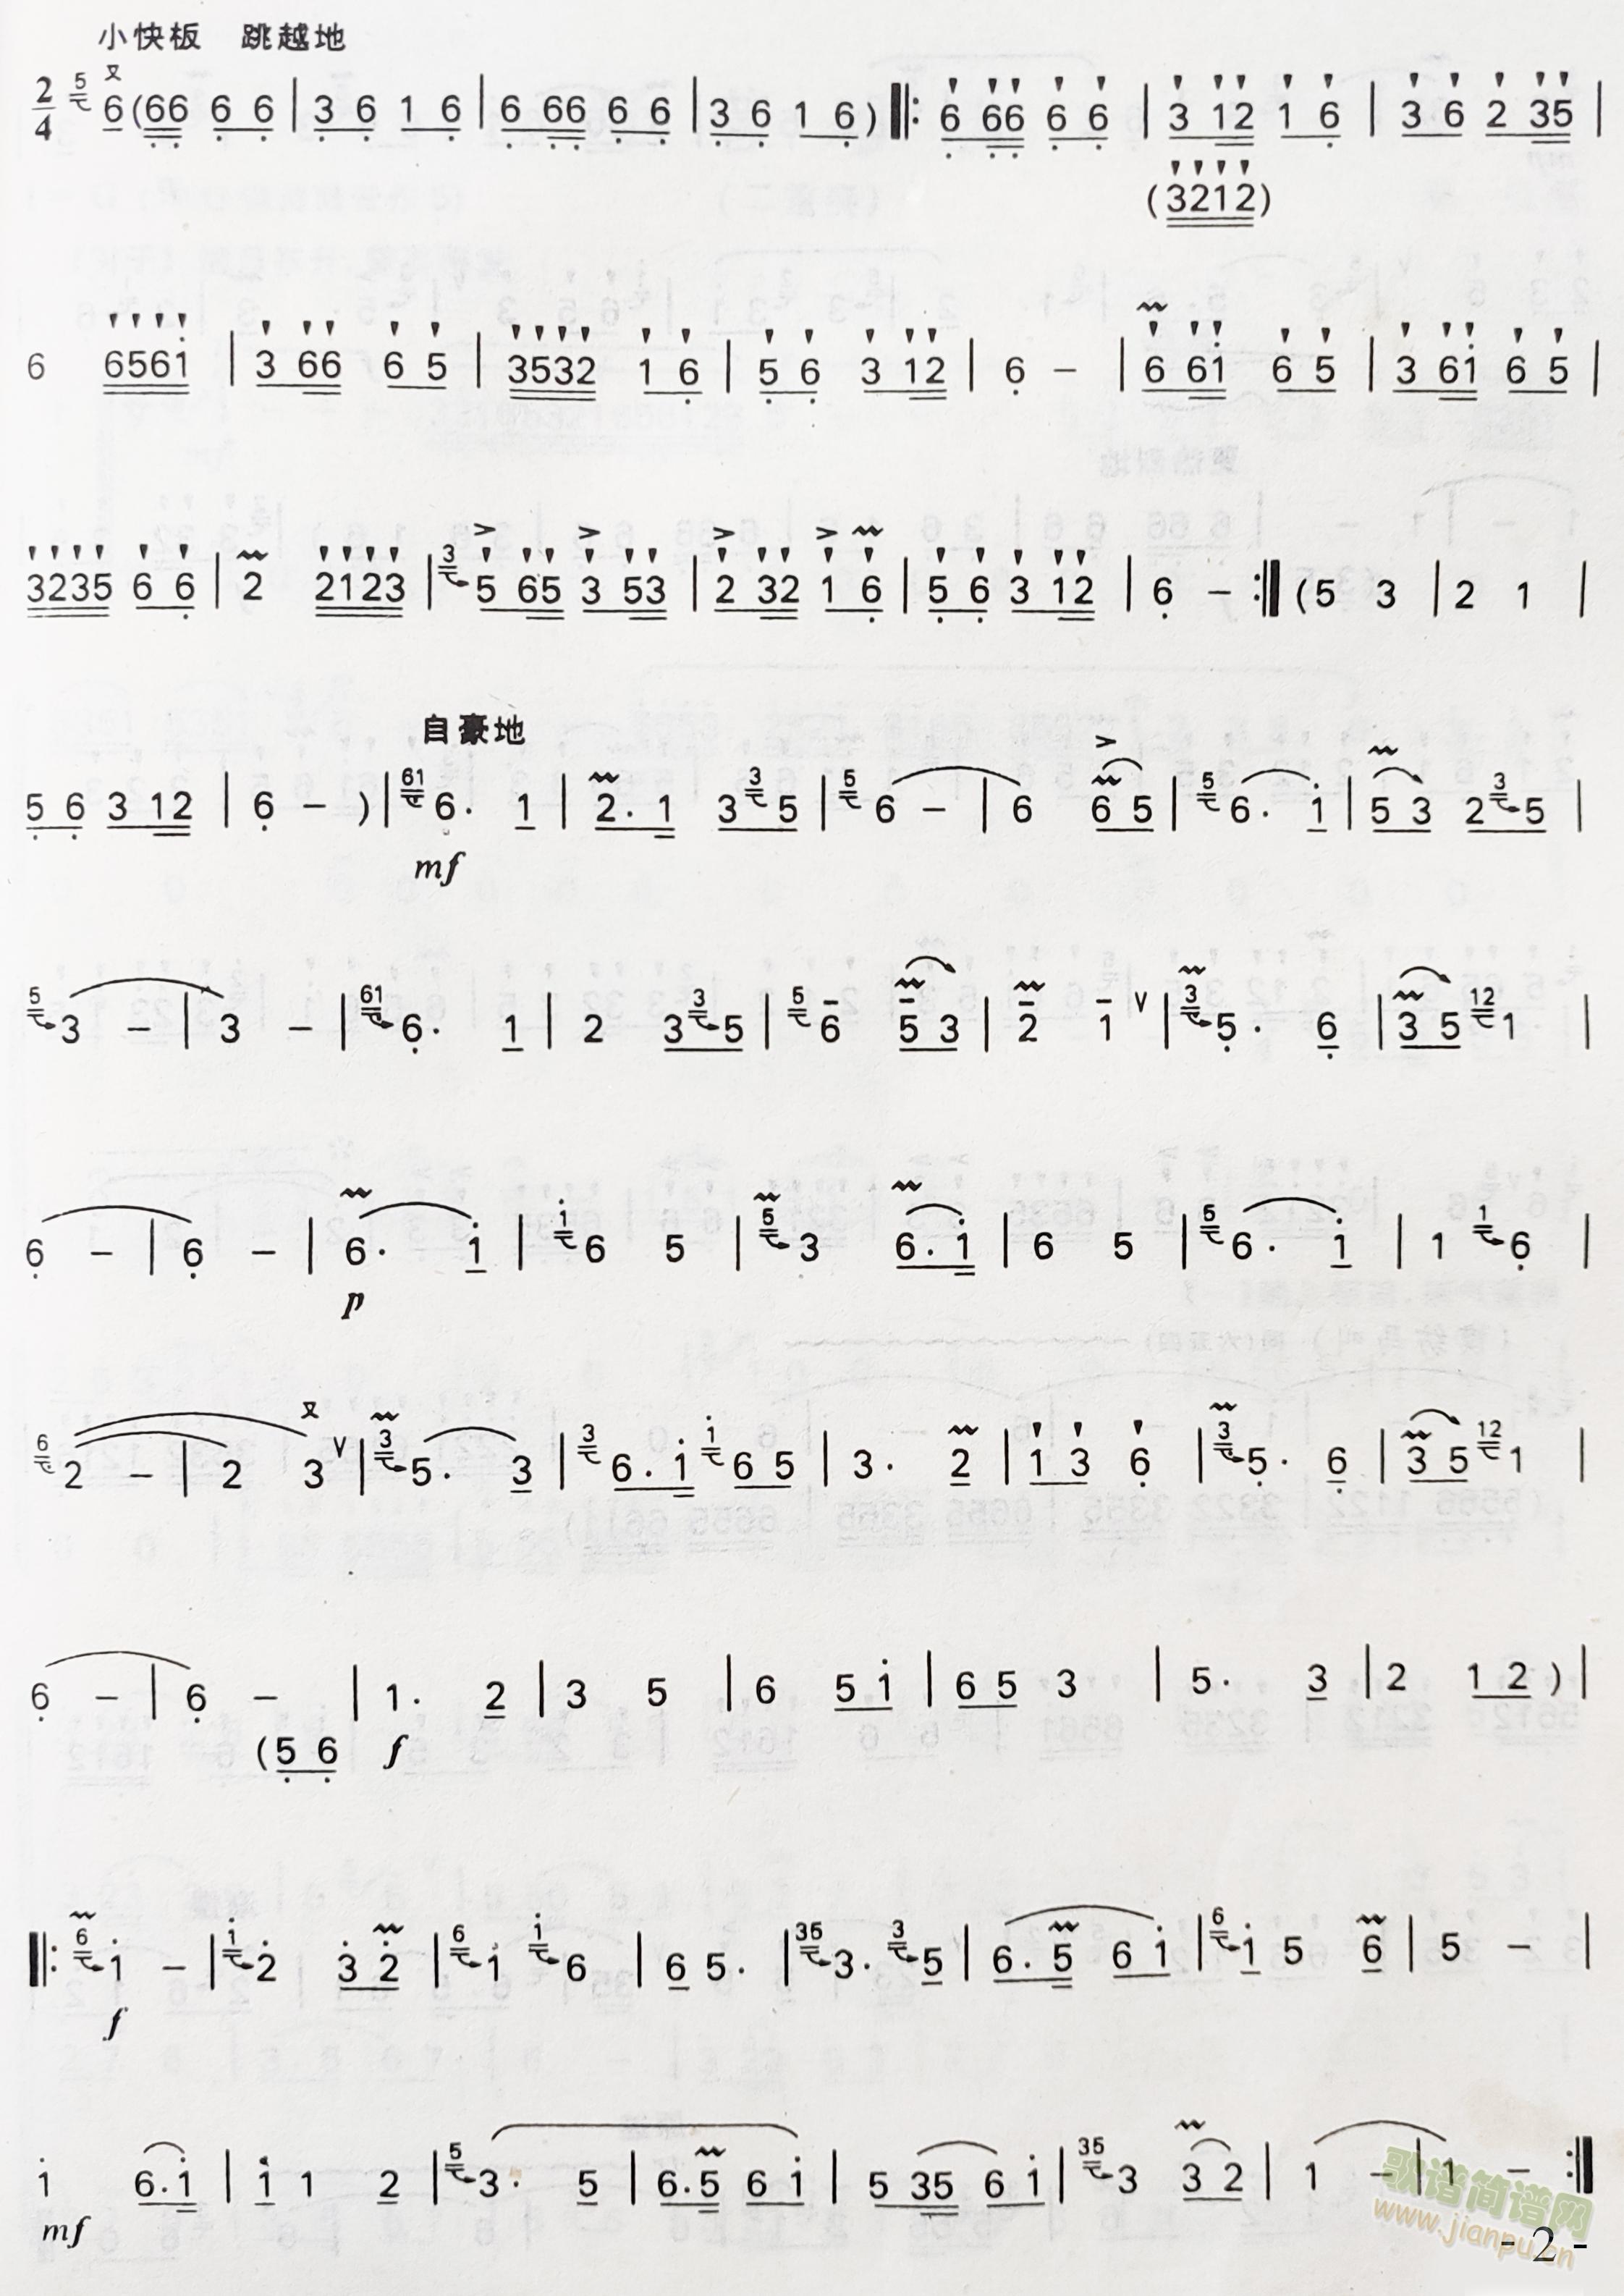 小快板 跳越地
2/4 5 又 6 (66 6 6 | 3 6 1 6 | 6 66 6 6 | 3 6 1 6 ) ‖: 6 66 6 6 | 3 12 1 6 | 3 6 2 35 |
(3212)
6 6561 | 3 66 6 5 | 3532 1 6 | 5 6 3 12 | 6 – | 6 61 6 5 | 3 61 6 5 |
3235 6 6 | 2 2123 | 3 5 65 3 53 | 2 32 1 6 | 5 6 3 12 | 6 – :‖ (5 3 | 2 1 |
自豪地
5 6 3 12 | 6 – ) | 61 6· 1 | 2· 1 3 3 5 | 5 6 – | 6 6 5 | 5 6· 1 | 5 3 2 3 5 |
mf
5 3 – | 3 – | 61 6· 1 | 2 3 3 5 | 5 6 5 3 | 2 1 ∨ | 3 5· 6 | 3 5 12 1 |
6 – | 6 – | 6· 1 | 1 6 5 | 5 3 6· 1 | 6 5 | 5 6· 1 | 1 1 6 |
p
6 2 – | 2 又 3 ∨ | 3 5· 3 | 3 6· 1 1 6 5 | 3· 2 | 1 3 6 | 3 5· 6 | 3 5 12 1 |
6 – | 6 – | 1· 2 | 3 5 | 6 5 1 | 6 5 3 | 5· 3 | 2 1 2 ) |
(5 6 f
‖: 6 1 – | 1 2 3 2 | 6 1 1 6 | 6 5· | 35 3· 3 5 | 6· 5 6 1 | 6 1 5 6 | 5 – |
f
1 6· 1 | 1 1 2 | 5 3· 5 | 6· 5 6 1 | 5 35 6 1 | 35 3 3 2 | 1 – | 1 – :‖
mf
歌谱简谱网
www.jianpu.cn
- 2 -